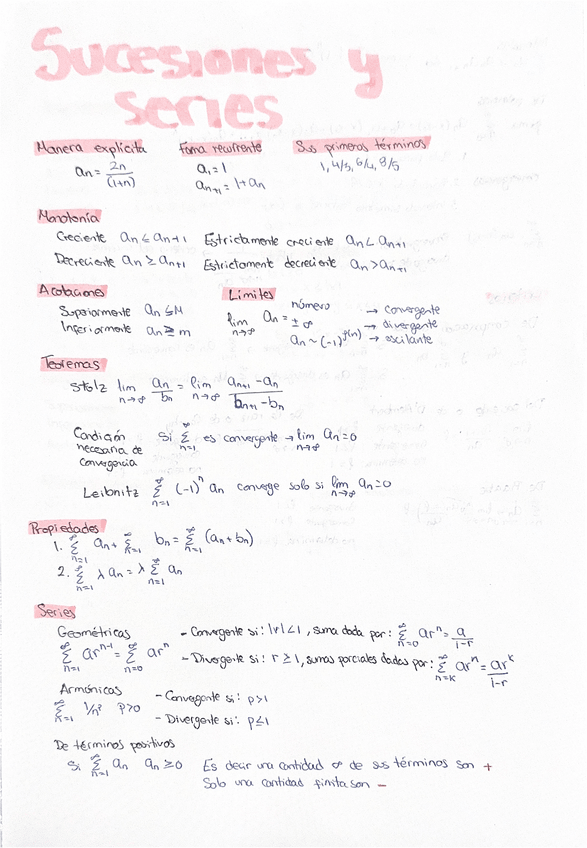 Sucesiones y
series
Manera explícita Foma recurrente Sus primeros términos
aₙ = 2n/(1+n) a₁ = 1 1, 4/3, 6/4, 8/5
aₙ₊₁ = 1 + aₙ
Monotonía
Creciente aₙ ≤ aₙ₊₁ Estrictamente creciente aₙ < aₙ₊₁
Decreciente aₙ ≥ aₙ₊₁ Estrictamente decreciente aₙ > aₙ₊₁
Acotaciones Límites
Superiormente aₙ ≤ M
Inferiormente aₙ ≥ m
lim n→∞ aₙ = número → convergente
± ∞ → divergente
aₙ ~ (-1)^f(n) → oscilante
Teoremas
Stolz lim n→∞ aₙ/bₙ = lim n→∞ (aₙ₊₁ - aₙ)/(bₙ₊₁ - bₙ)
Condición si ∞Σn=1 es convergente → lim n→∞ aₙ = 0
necesaria de
convergencia
Leibnitz ∞Σn=1 (-1)ⁿ aₙ converge solo si lim n→∞ aₙ = 0
Propiedades
1. ∞Σn=1 aₙ + ∞Σn=1 bₙ = ∞Σn=1 (aₙ + bₙ)
2. ∞Σn=1 λ aₙ = λ ∞Σn=1 aₙ
Series
Geométricas
∞Σn=1 arⁿ⁻¹ = ∞Σn=0 arⁿ
- Convergente si: |r| < 1, suma dada por: ∞Σn=0 arⁿ = a/(1-r)
- Divergente si: r ≥ 1, sumas parciales dadas por: ∞Σn=k arⁿ = arᵏ/(1-r)
Armónicas
∞Σn=1 1/nᵖ p>0
- Convergente si: p>1
- Divergente si: p≤1
De términos positivos
Si ∞Σn=1 aₙ aₙ ≥ 0 Es decir una cantidad ∞ de sus términos son +
Solo una cantidad finita son -